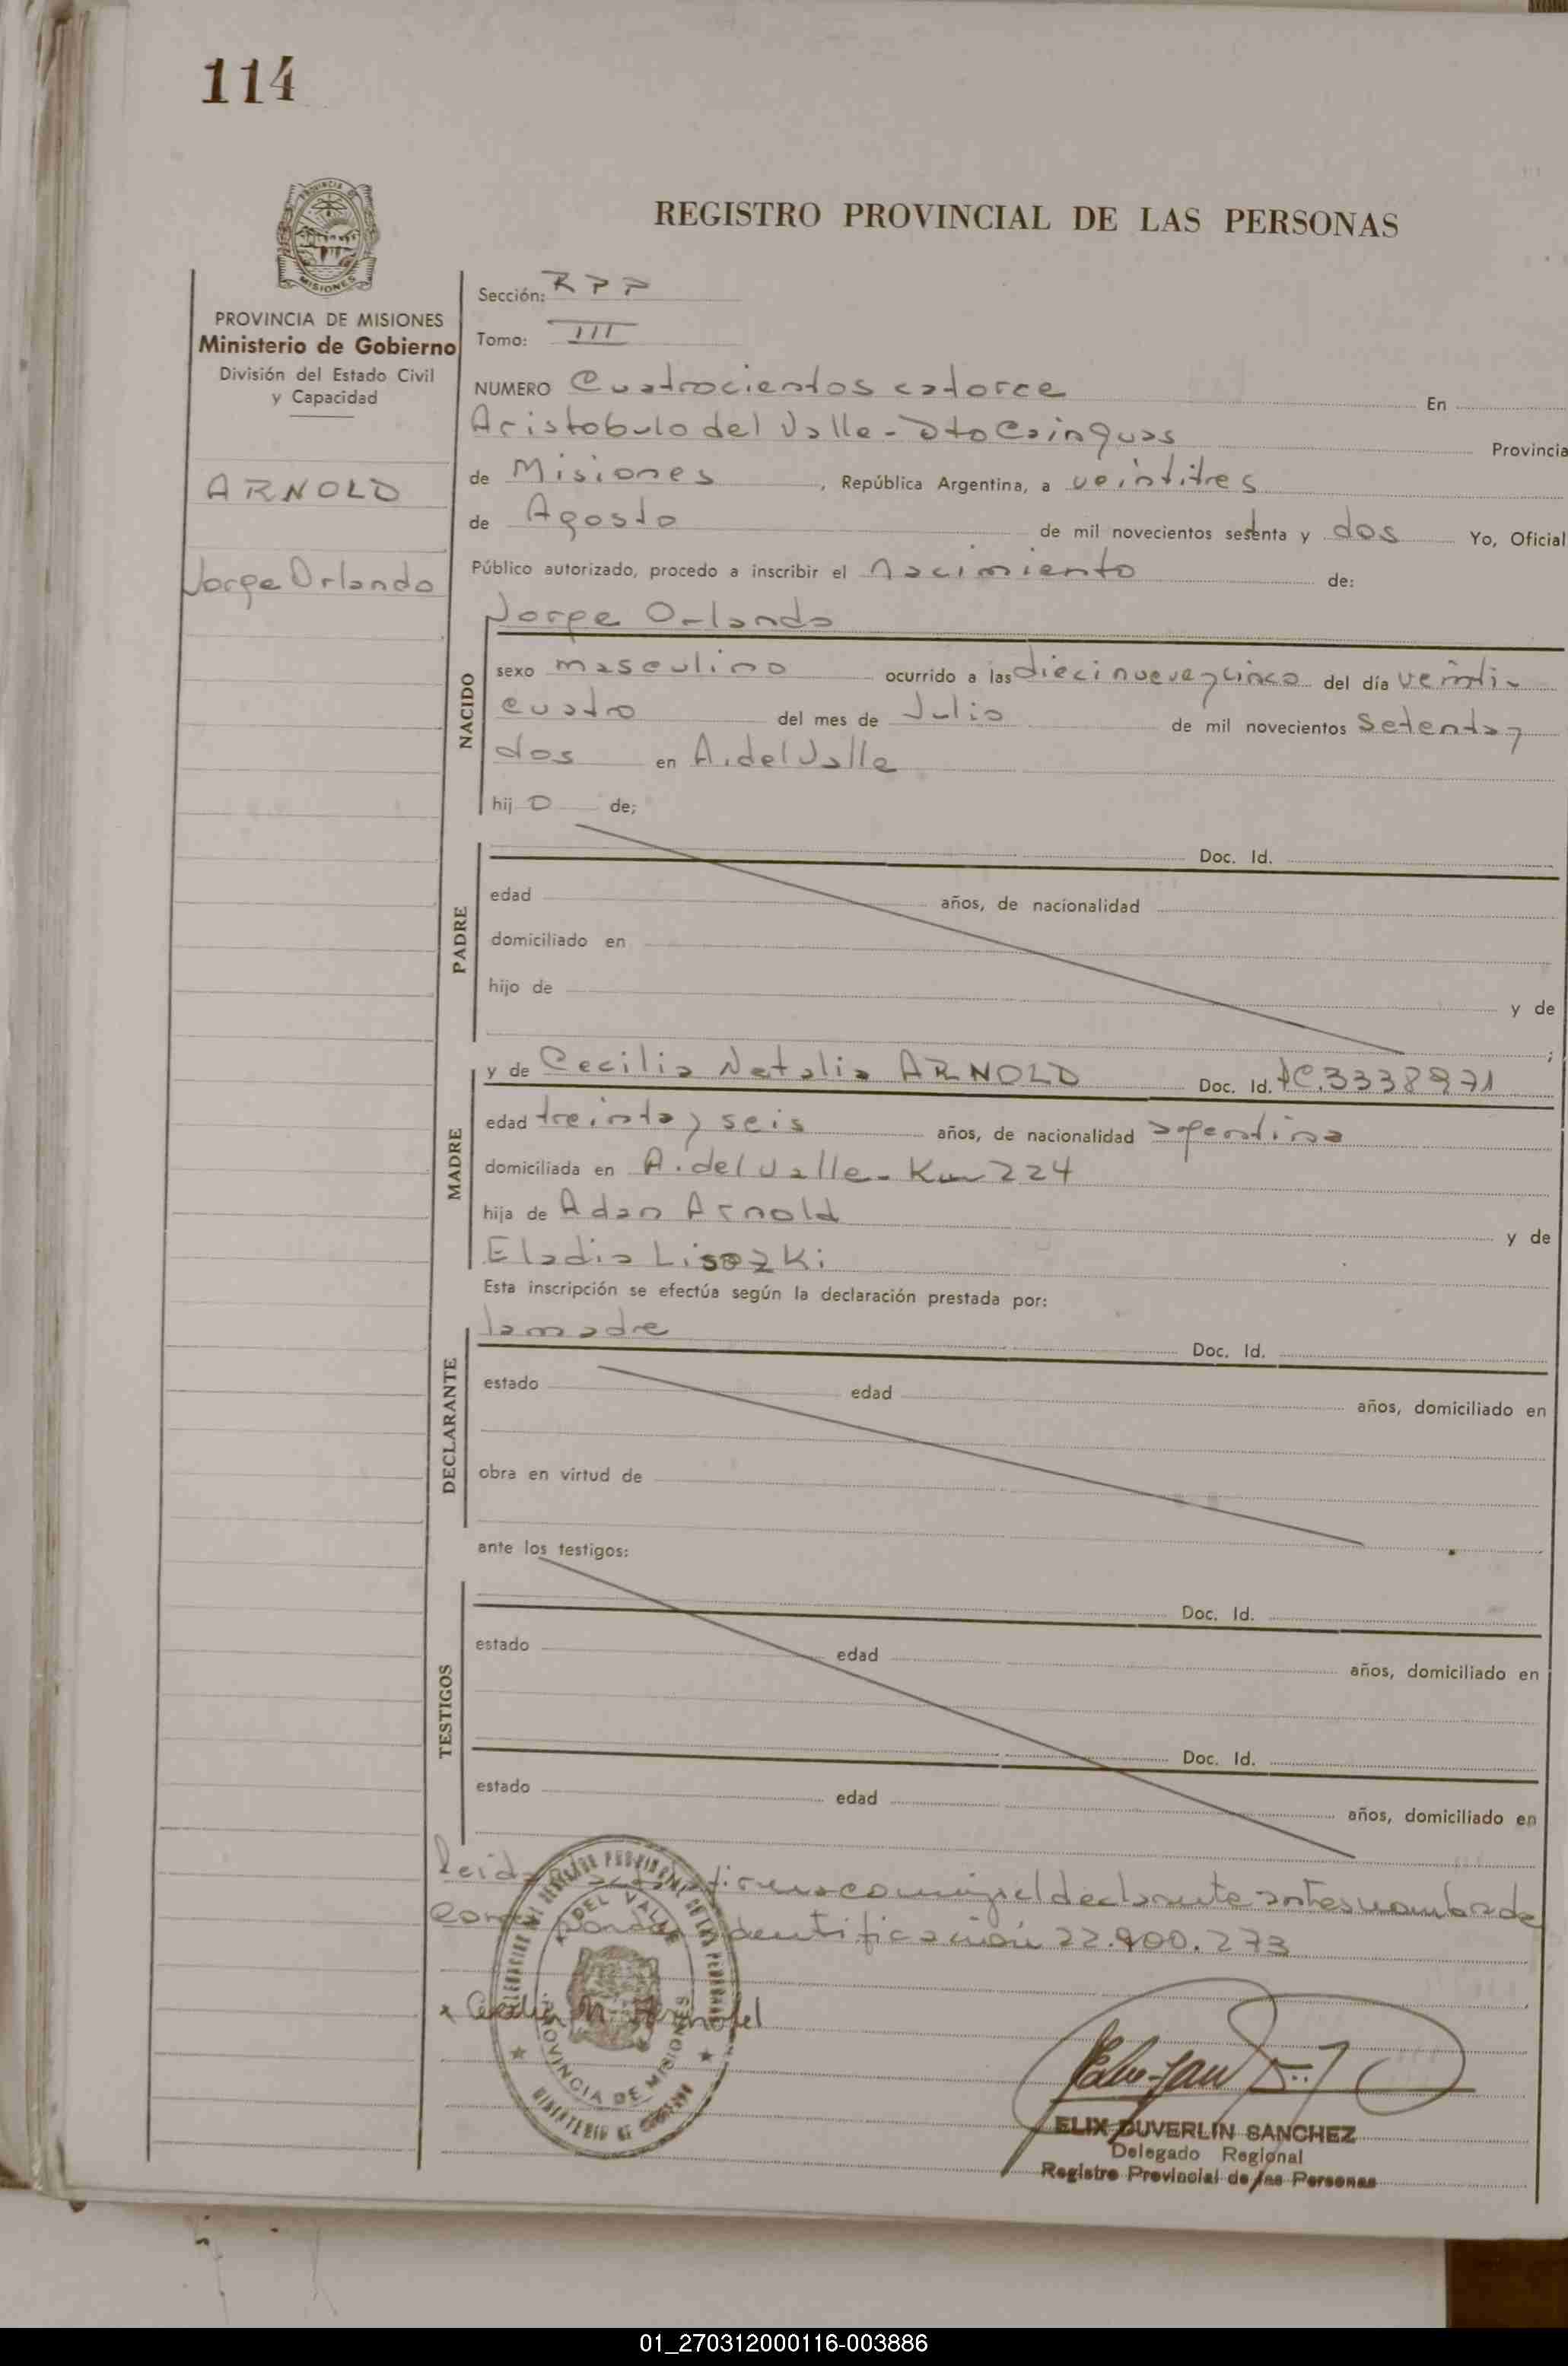 114
PROVINCIA DE
MISIONES
REGISTRO PROVINCIAL DE LAS PERSONAS
PROVINCIA DE MISIONES
Ministerio de Gobierno
División del Estado Civil
y Capacidad
ARNOLD
Jorge Orlando
Sección: RPP
Tomo: III
NUMERO Cuatrocientos catorce En
Aristobulo del Valle - Dto Cainguas Provincia
de Misiones, República Argentina, a veintitres
de Agosto de mil novecientos setenta y dos Yo, Oficial
Público autorizado, procedo a inscribir el Nacimiento de:
NACIDO
Jorge Orlando
sexo masculino ocurrido a las diecinueve y cinco del día veinti-
cuatro del mes de Julio de mil novecientos setenta y
dos en A. del Valle
hij o de;
PADRE
Doc. Id.
edad años, de nacionalidad
domiciliado en
hijo de y de
;
MADRE
y de Cecilia Natalia ARNOLD Doc. Id. LC. 3338971
edad treinta y seis años, de nacionalidad argentina
domiciliada en A. del Valle - Km 224
hija de Adan Arnold y de
Eladia Lisozki
Esta inscripción se efectúa según la declaración prestada por:
DECLARANTE
la madre Doc. Id.
estado edad años, domiciliado en
obra en virtud de
ante los testigos:
TESTIGOS
Doc. Id.
estado edad años, domiciliado en
Doc. Id.
estado edad años, domiciliado en
Leida firma conmigo el declarante antes nombrado
identificación 22.900.273
A. DEL VALLE
PROVINCIA DE MISIONES
MINISTERIO DE GOBIERNO
Cecilia N. Arnold
ELIX DUVERLIN SANCHEZ
Delegado Regional
Registro Provincial de las Personas
01_270312000116-003886